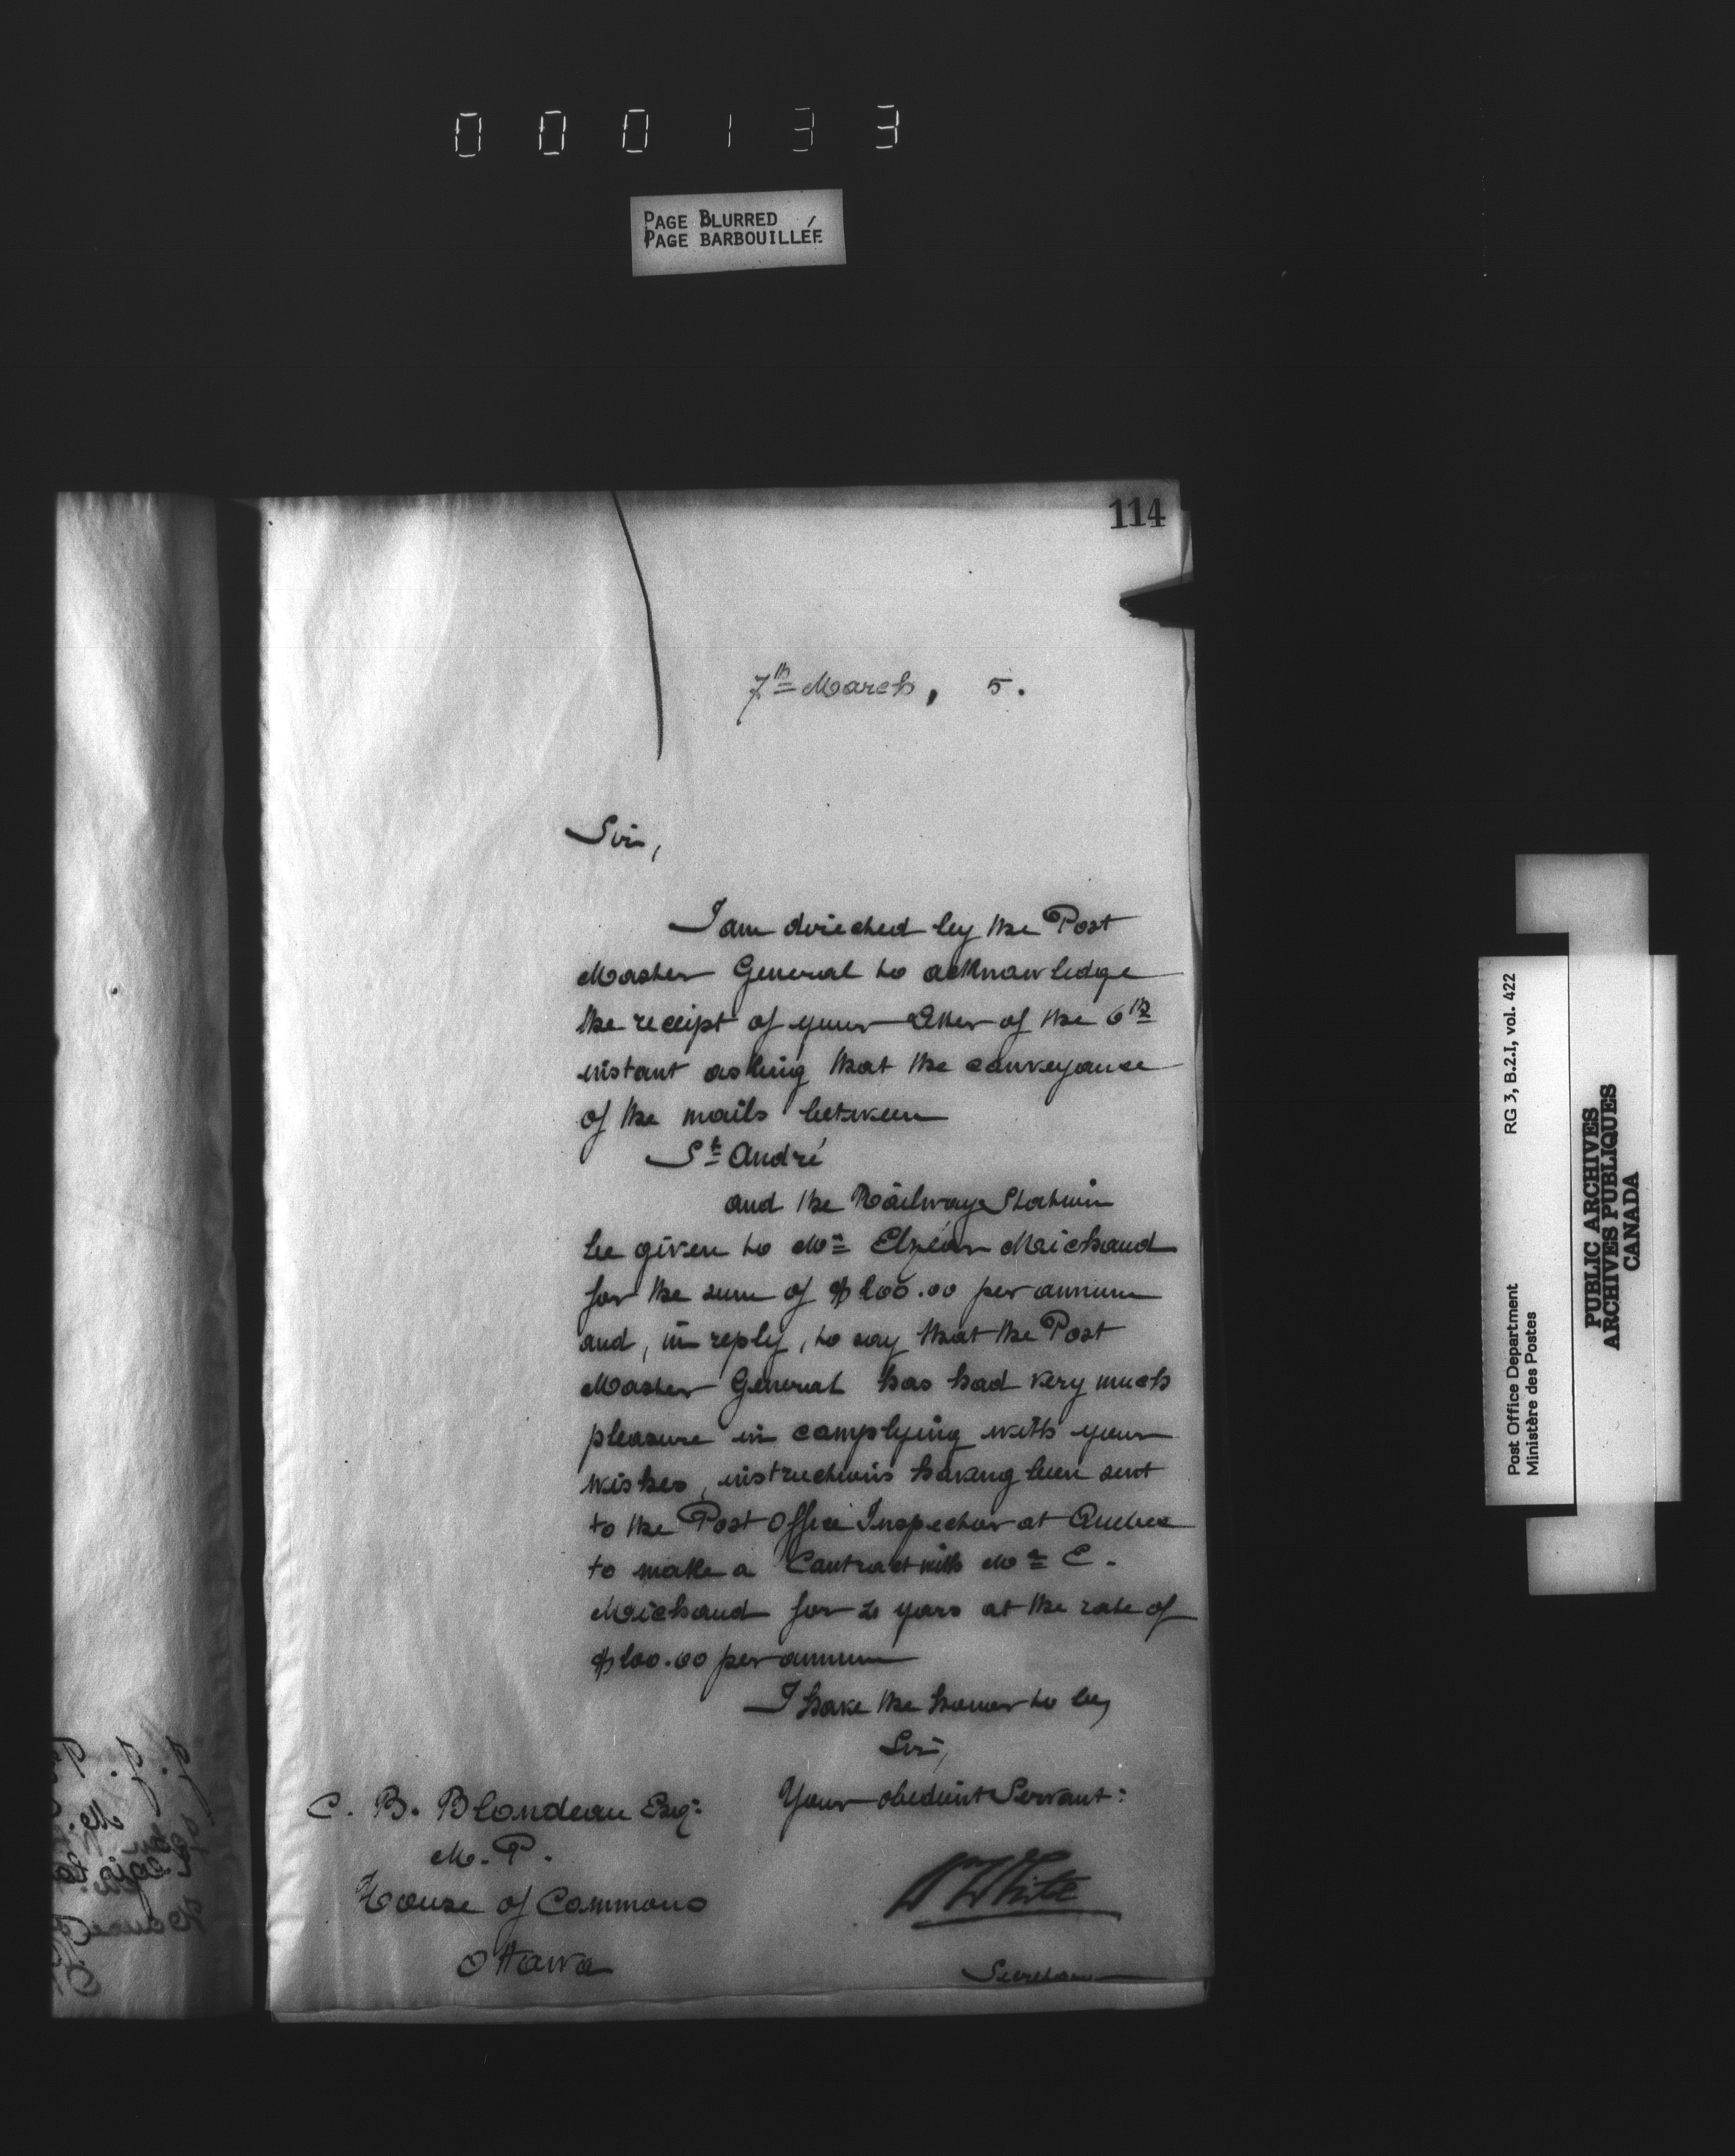 000133
PAGE BLURRED
PAGE BARBOUILLÉE
114
7th March, 5.
Sir,
I am directed by the Post
Master General to acknowledge
the receipt of your letter of the 6th
instant asking that the conveyance
of the mails between
St André
and the Railway Station
be given to Mr Elzéar Michaud
for the sum of $100.00 per annum
and, in reply, to say that the Post
Master General has had very much
pleasure in complying with your
wishes, instructions having been sent
to the Post Office Inspector at Quebec
to make a Contract with Mr E.
Michaud for 4 years at the rate of
$100.00 per annum
I have the honor to be,
Sir,
Your obedient Servant:
C. B. Blondeau Esqr
M. P.
House of Commons
Ottawa
W White
Secretary
Post Office Department RG 3, B.2.I, vol. 422
Ministère des Postes
PUBLIC ARCHIVES
ARCHIVES PUBLIQUES
CANADA